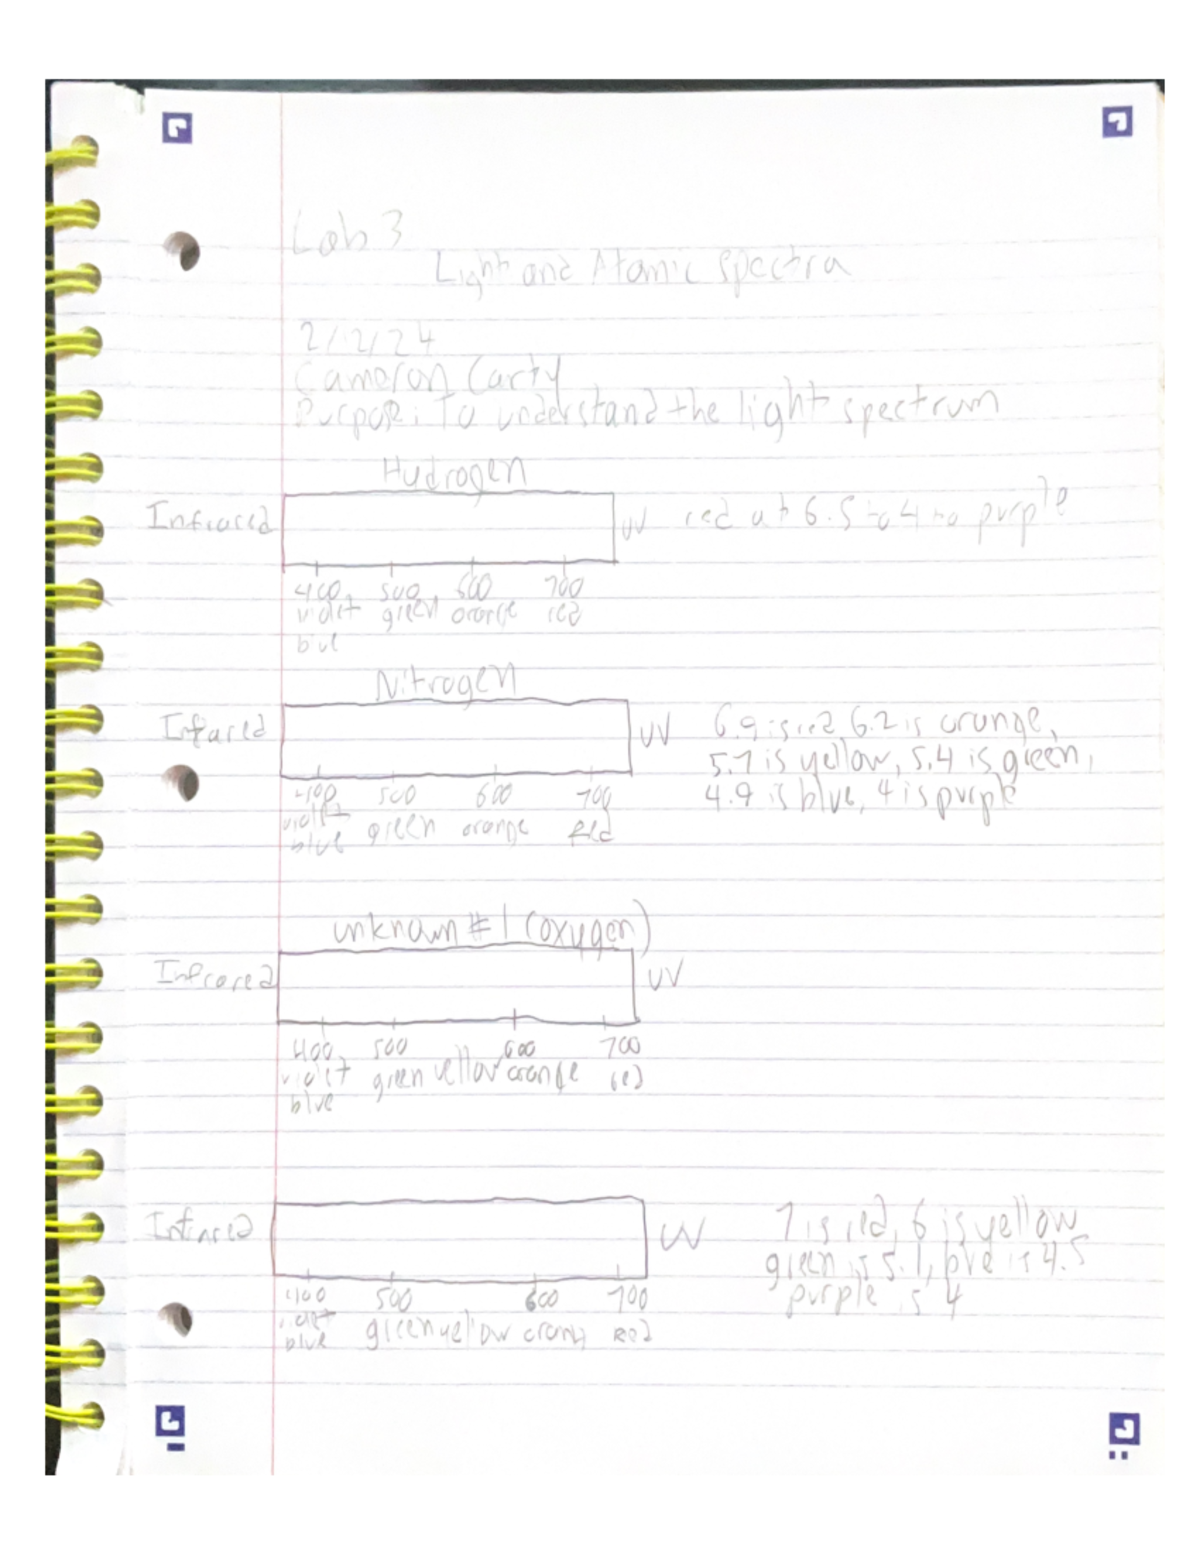 Lab 3
Light and Atomic Spectra
2/2/24
Cameron Carty
Purpose: To understand the light spectrum
Hydrogen
Infrared UV red at 6.5 to 4 to purple
400 500 600 700
violet green orange red
blue
Nitrogen
Infared UV 6.9 is red, 6.2 is orange,
5.7 is yellow, 5.4 is green,
4.9 is blue, 4 is purple
400 500 600 700
violet green orange Red
blue
unknown #1 (oxygen)
Infrared UV
400 500 600 700
violet green yellow orange red
blue
Infrared UV 7 is red, 6 is yellow
green is 5.1, blue is 4.5
purple is 4
400 500 600 700
violet green yellow orange Red
blue